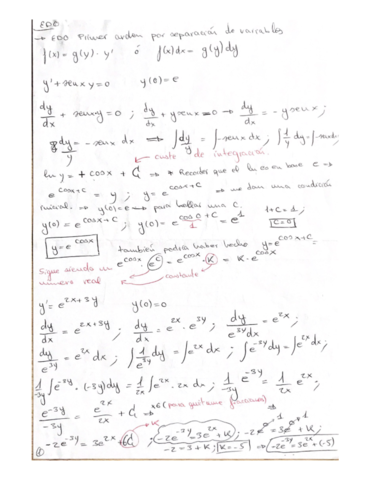 EDO
→ EDO Primer orden por separación de variables
f(x) = g(y) · y' ó f(x)dx = g(y)dy
y' + senx y = 0 y(0) = e
dy/dx + senx y = 0 ; dy/dx + y senx = 0 → dy/dx = -y senx ;
dy/y = -senx dx → ∫dy/y = ∫-senx dx ; ∫1/y dy = ∫-senx dx
cuate de integración.
ln y = + cosx + C → * Recordar que el ln es en base e →
e^(cosx+C) = y ; y = e^(cosx+C) → me dan una condición
inicial. → y(0) = e → para hallar una C.
y(0) = e^(cosx+C) ; y(0) = e^(cos0+C) = e^1 1+C = 1 ; C = 0
y = e^(cosx) también podría haber hecho y = e^(cosx+C) =
e^(cosx) · e^C = e^(cosx) · K = K · e^(cosx)
Sigue siendo un número real constante
y' = e^(2x+3y) y(0) = 0
dy/dx = e^(2x+3y) ; dy/dx = e^(2x) · e^(3y) ; dy/(e^(3y) dx) = e^(2x) ;
dy/e^(3y) = e^(2x) dx ; ∫1/e^(3y) dy = ∫e^(2x) dx ; ∫e^(-3y) dy = ∫e^(2x) dx ;
1/-3y ∫e^(-3y) · (-3y)dy = 1/2x ∫e^(2x) · 2x dx ; 1/-3y e^(-3y) = 1/2x e^(2x) ;
e^(-3y)/-3y = e^(2x)/2x + C → ·6 (para quitarme fracciones)
-2e^(-3y) = 3e^(2x) + 6C K ; -2e^(-3y) = 3e^(2x) + K ; -2e^0 = 3e^0 + K ;
-2 = 3 + K ; K = -5 → -2e^(-3y) = 3e^(2x) + (-5)
①